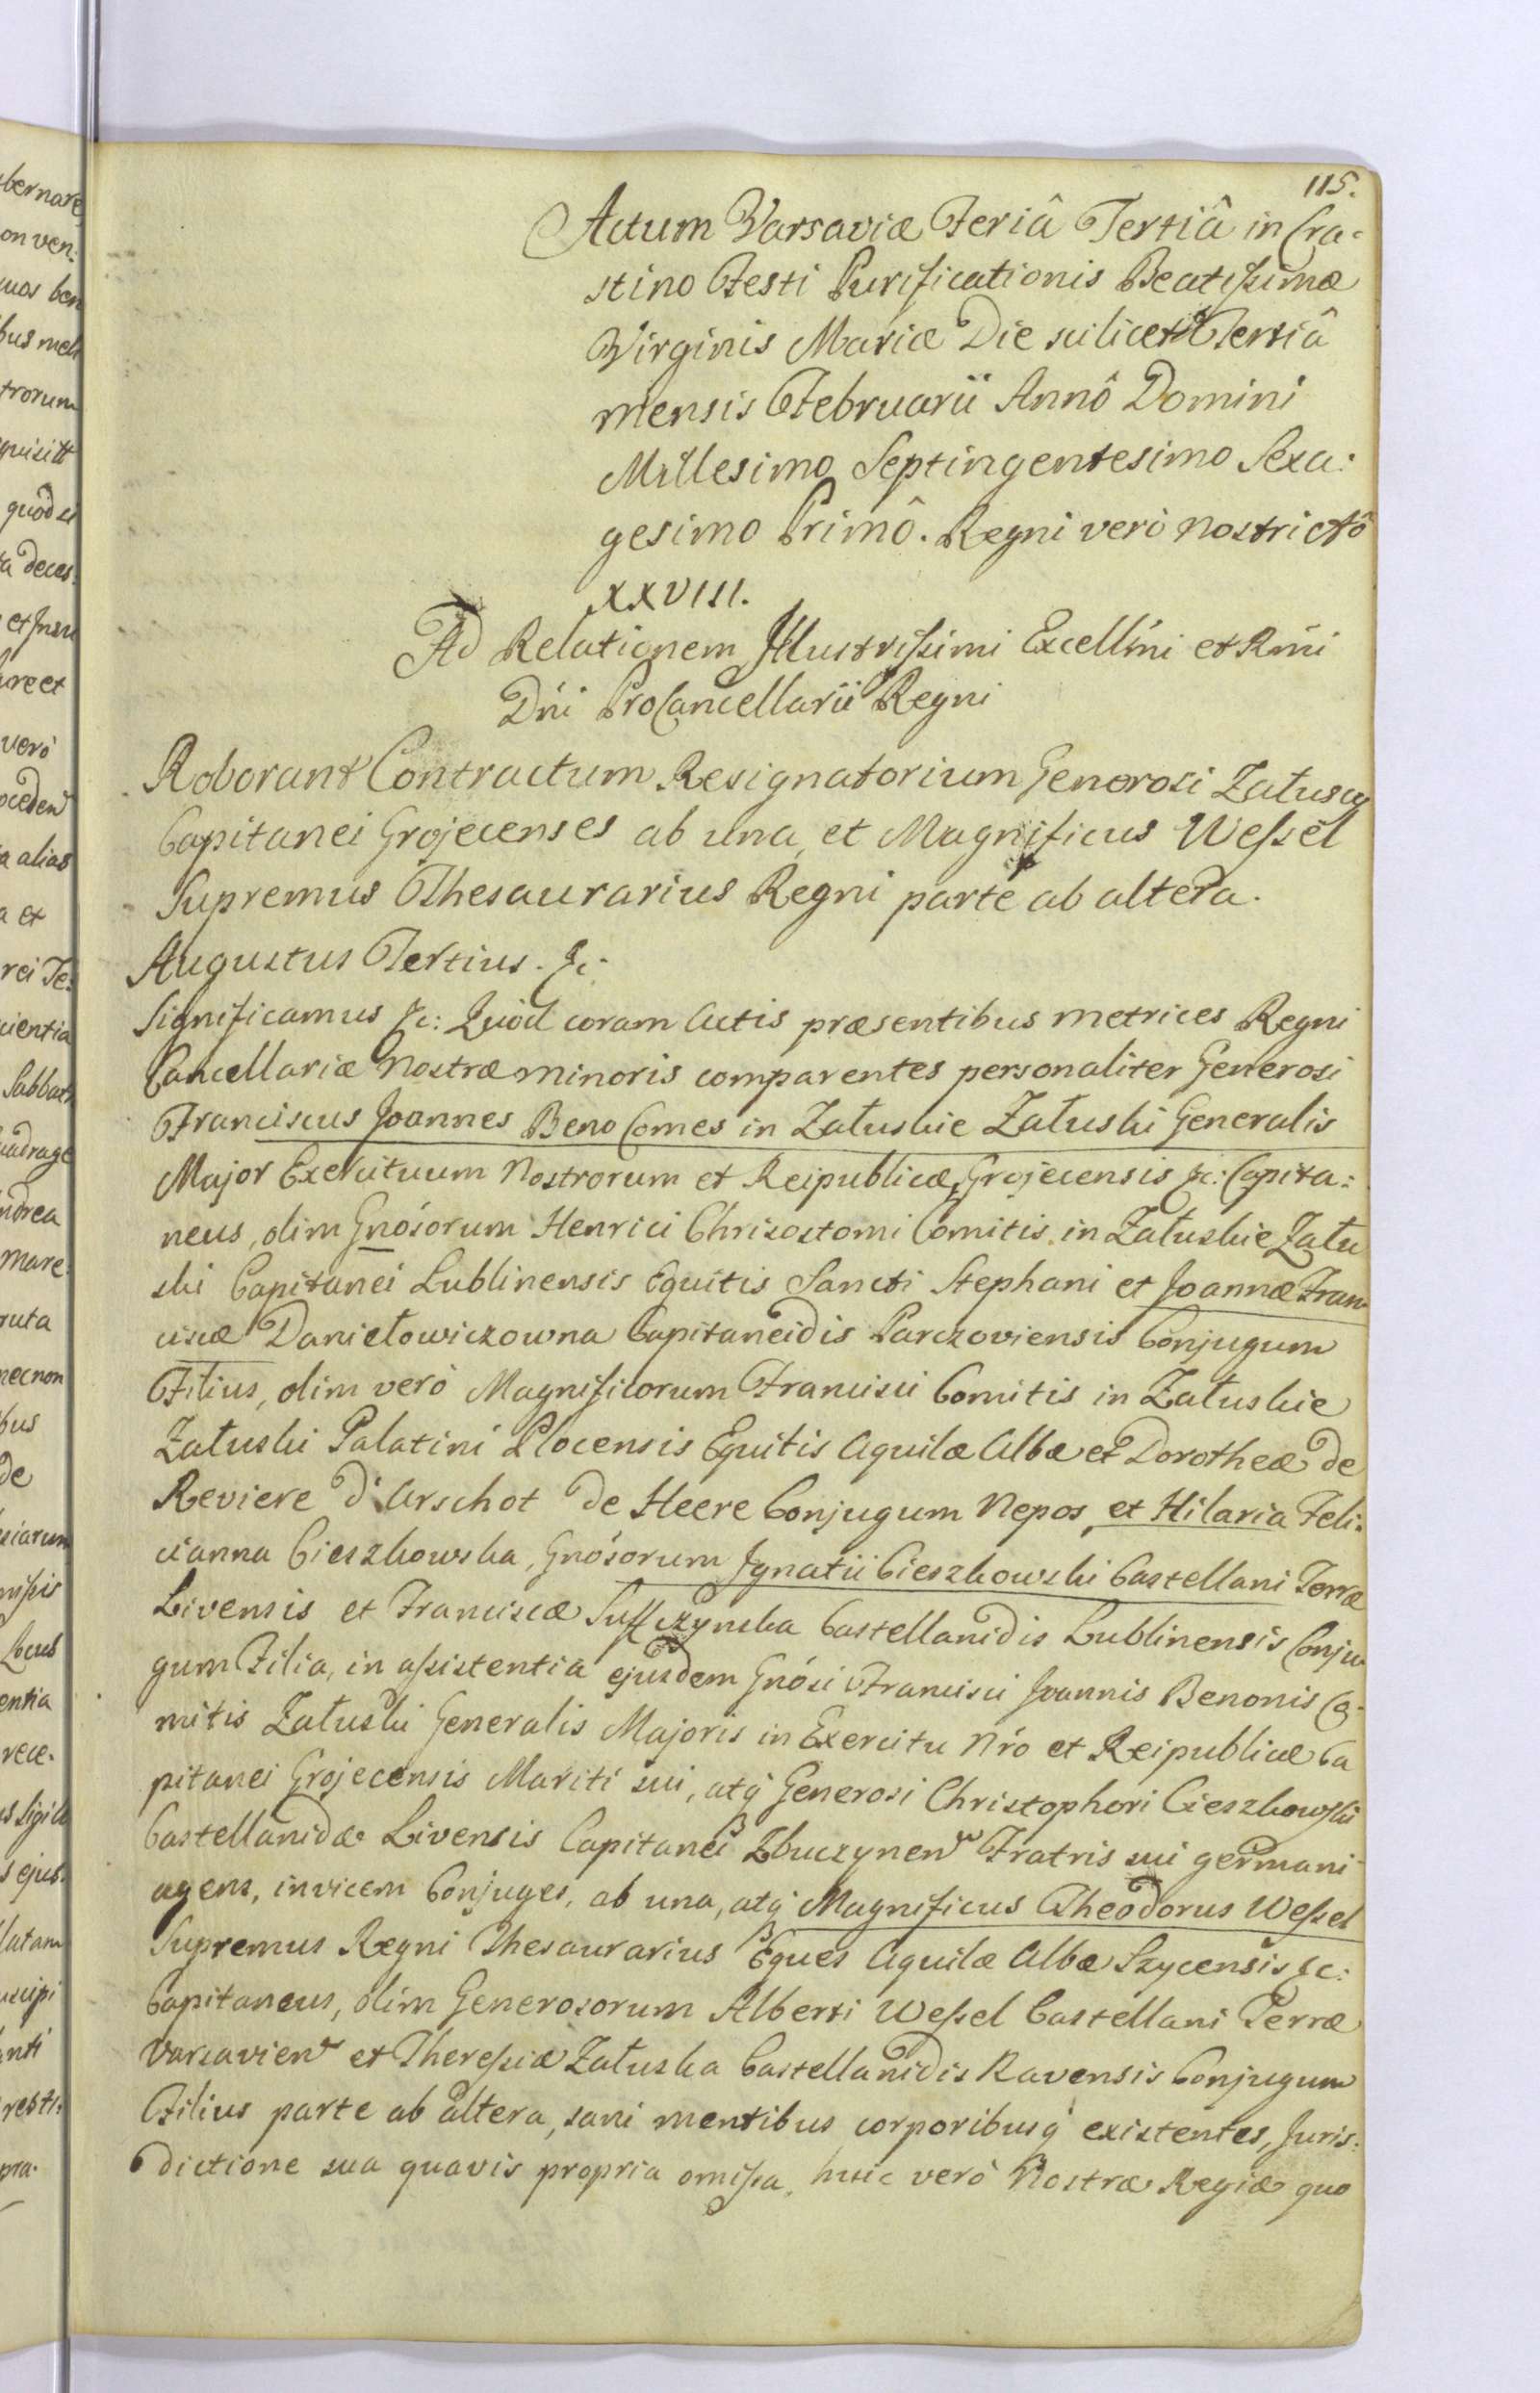 115.
Actum Varsaviæ Feriâ Tertiâ in Cra-
stino Festi Purificationis Beatissimæ
Virginis Mariæ Die scilicet Tertiâ
mensis Februarii Annô Domini
Millesimo Septingentesimo Sexa:
gesimo Primô. Regni verò nostri
XXVIII.
Ad Relationem Illustrissimi Excellm̃i et Rm̃i
Dñi ProCancellarii Regni
Roborant Contractum Resignatorium Generosi Załuscy
Capitanei Grojecenses ab una, et Magnificus Wessel
Supremus Thesaurarius Regni parte ab altera.
Augustus Tertius. &c.
Significamus &c: Quod coram Actis præsentibus metrices Regni
Cancellariæ Nostræ minoris comparentes personaliter Generosi
Franciscus Joannes Beno Comes in Załuskie Załuski Generalis
Major Exercituum Nostrorum et Reipublicæ, Grojecensis &c: Capita:
neus, olim Gnósorum Henrici Chrisostomi Comitis in Załuskie Zału
ski Capitanei Lublinensis Equitis Sancti Stephani et Joannæ Fran
ciscæ Daniełowiczowna Capitaneidis Parczoviensis Conjugum
Filius, olim verò Magnificorum Francisci Comitis in Załuskie
Załuski Palatini Plocensis Equitis Aquilæ Albæ et Dorotheæ de
Reviere d'Arschot de Heere Conjugum Nepos, et Hilaria Feli:
cianna Cieszkowska, Gnósorum Ignatii Cieszkowski Castellani Terræ
Livensis et Franciscæ Suffczynska Castellanidis Lublinensis Conju
gum Filia, in assistentia ejusdem Gnósi Francisci Joannis Benonis Co-
mitis Załuski Generalis Majoris in Exercitu Nró et Reipublicæ Ca
pitanei Grojecensis Mariti sui, atq́ Generosi Christophori Cieszkowski
Castellanidæ Livensis Capitanei Zbuczynen Fratris sui germani
agens, invicem Conjuges, ab una, atq́ Magnificus Theodorus Wessel
Supremus Regni Thesaurarius Eques Aquilæ Albæ Szycensis &c:
Capitaneus, olim Generosorum Alberti Wessel Castellani Terræ
Varsavien et Theressiæ Załuska Castellanidis Ravensis Conjugum
Filius parte ab altera, sani mentibus corporibusq́ existentes, Juris:
dictione sua quavis propria omissa, huic verò Nostræ Regiæ quo
bernare
on ven:
bus
trorum
quisitt
quod
deces:
et
ore et
verò
a alias
a et
rei Te:
cientia
Sabbat
ndrea
mare:
ruta
necnon
bus
de
siarum
Locus
entia
rece-
s ejus
latam
ucipi
anti
resti:
pra-